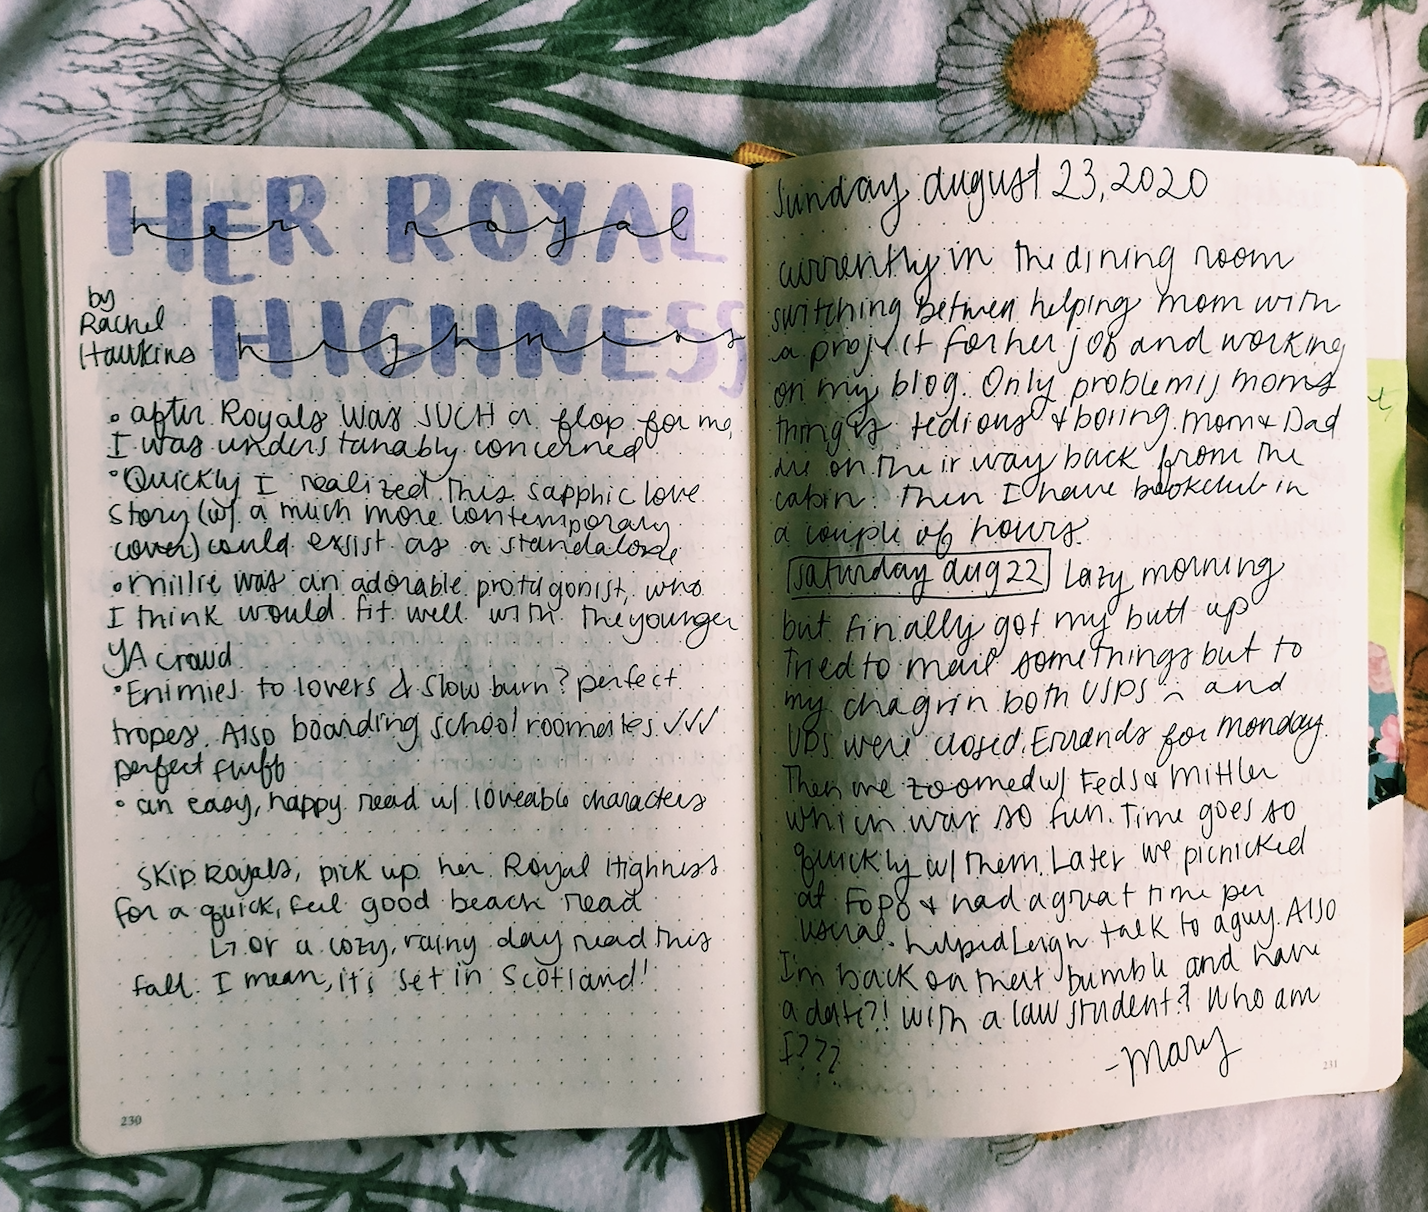 HER ROYAL
her royal
HIGHNESS
highness
by
Rachel
Hawkins
• after Royals was SUCH a flop for me,
I was understanably concerned
• Quickly I realized this sapphic love
story (w/ a much more contemporary
cover) could exsist as a standalone
• Millie was an adorable protagonist, who
I think would fit well with the younger
YA crowd
• Enimies to lovers & slow burn? perfect
tropes. Also boarding school roomates ✓✓✓
perfect fluff
• an easy, happy read w/ loveable characters
Skip Royals, pick up her Royal Highness
for a quick, feel good beach read
↳ or a cozy, rainy day read this
fall. I mean, it's set in Scotland!
230
Sunday august 23, 2020
currently in the dining room
switching between helping mom with
a project for her job and working
on my blog. Only problem is moms
thing is tedious & boring. Mom & Dad
are on their way back from the
cabin. Then I have bookclub in
a couple of hours.
Saturday aug 22 Lazy morning
but finally got my butt up
tried to mail some things but to
my chagrin both USPS and
UPS were closed. Errands for Monday.
Then we zoomed w/ Feds & Mittler
which was so fun. Time goes so
quickly w/ them. Later we picnicked
at FOPO & had a great time per
usual. Helped Leigh talk to a guy. Also
I'm back on that bumble and have
a date?! with a law student? Who am
I???
-Mary
231